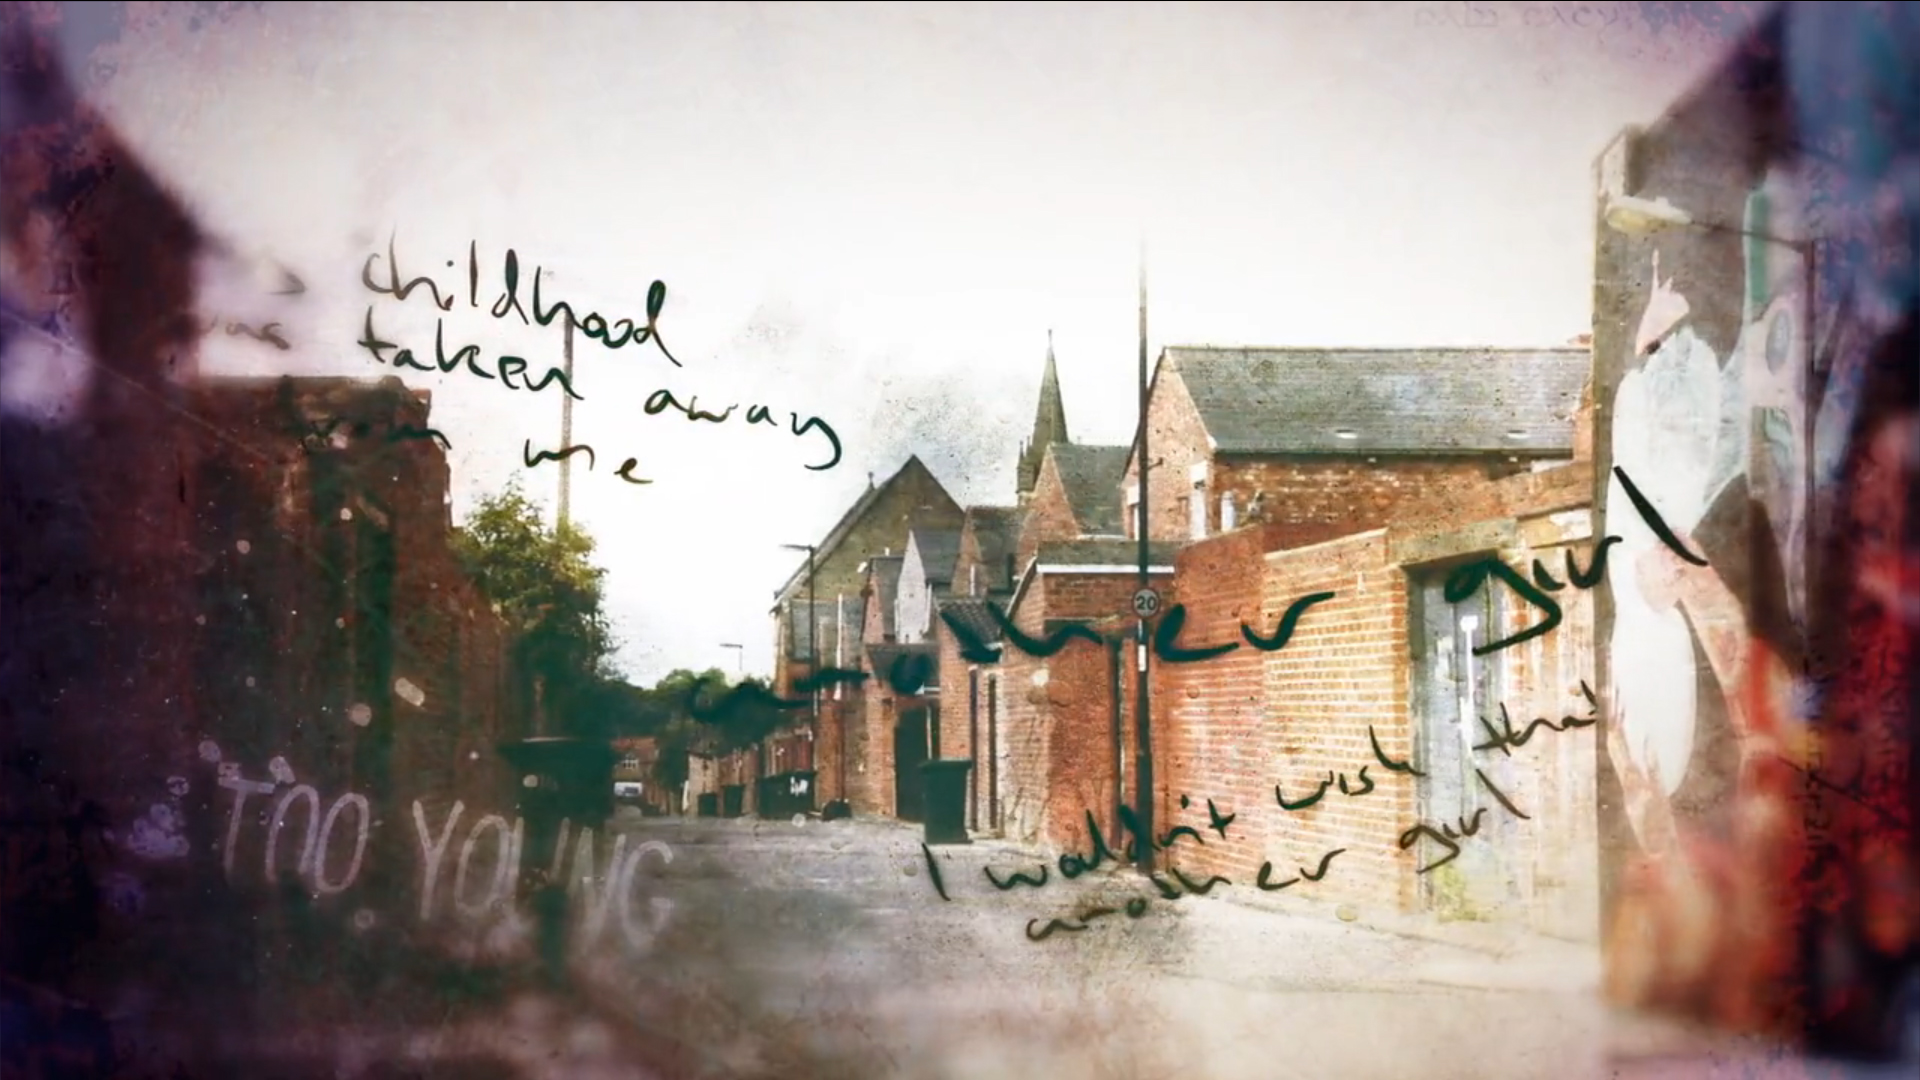 childhood
was taken away
from me
another girl
20
TOO YOUNG
I wouldn't wish that
another girl